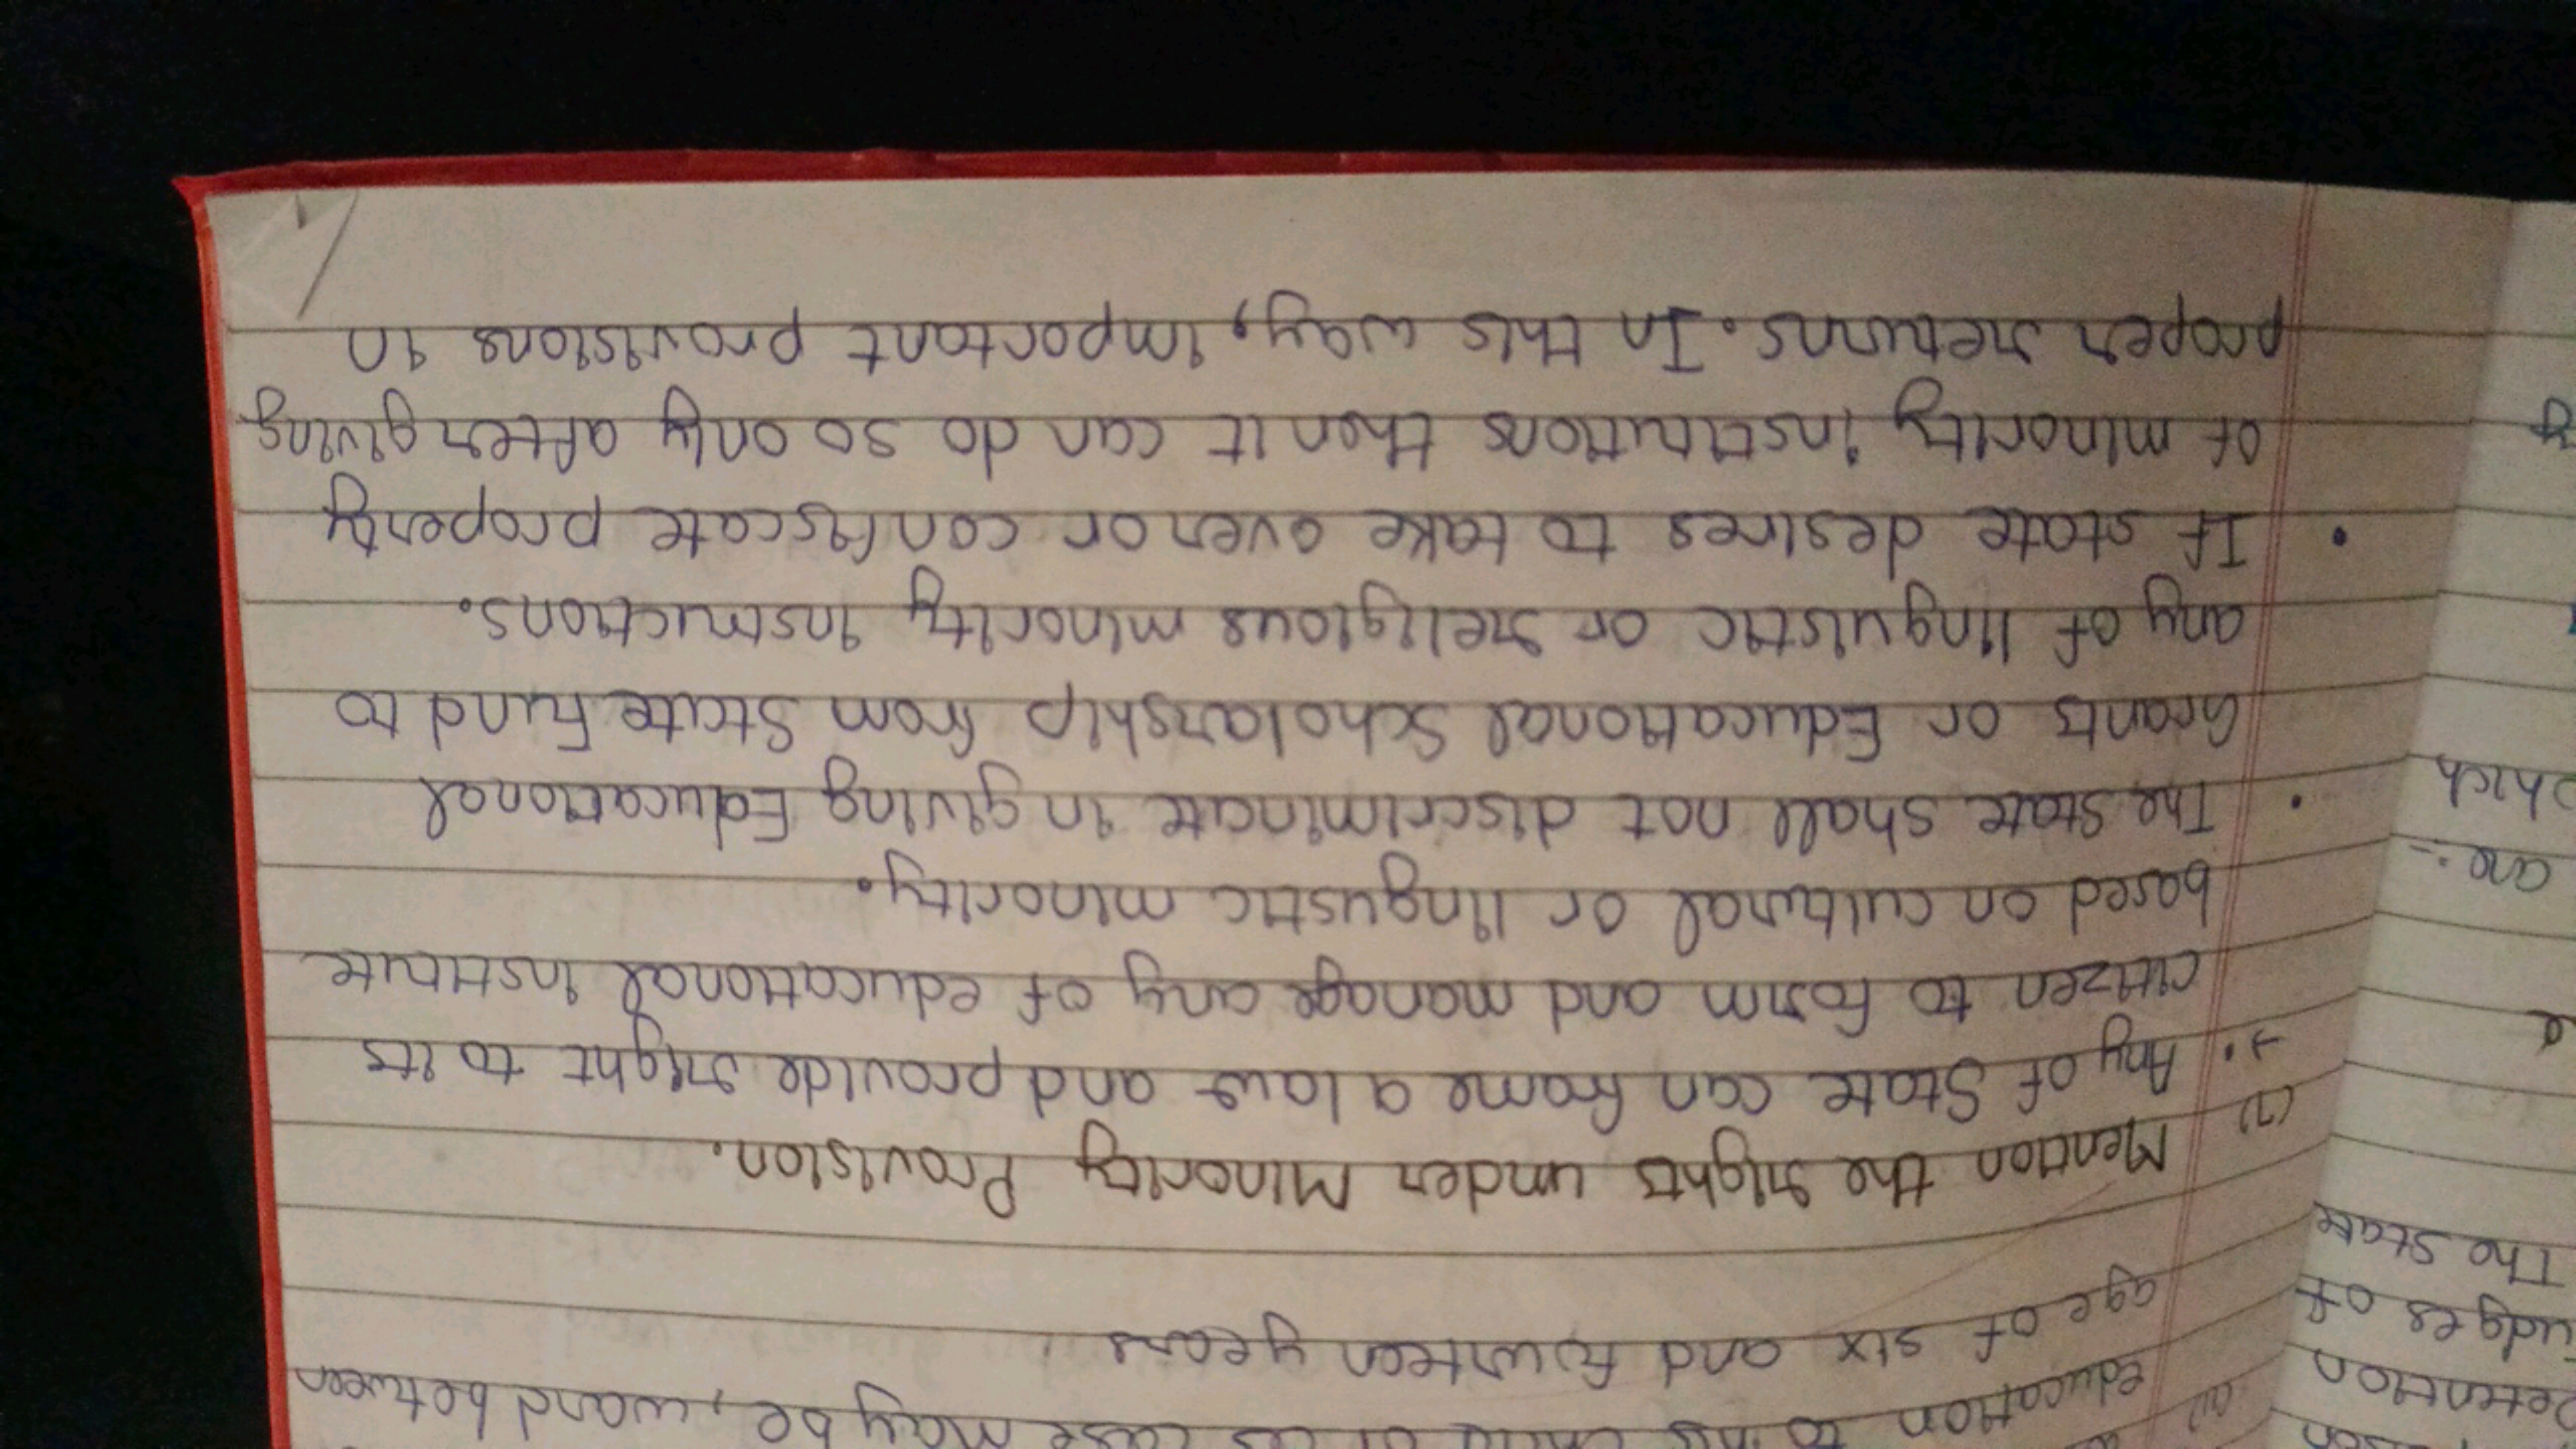 education to his child or as case may be, ward between
age of six and fourteen years
(7) Mention the rights under Minority Provision.
→ • Any of State can frame a law and provide right to its
citizen to form and manage any of educational institute
based on cultural or lingustic minority.
• The State shall not discriminate in giving Educational
Grants or Educational Scholarship from State Fund to
any of linguistic or religious minority instructions.
• If state desires to take over or confiscate property
of minority institutions then it can do so only after giving
proper returns. In this way, important provisions in
Detention
Judges of
The State
are :-
which